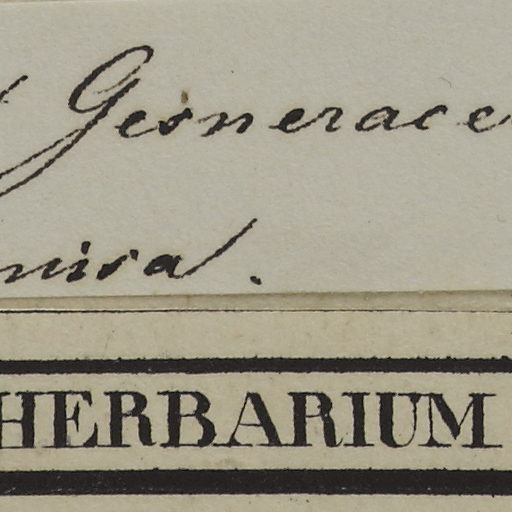 Gesnerace
nisa.
HERBARIUM